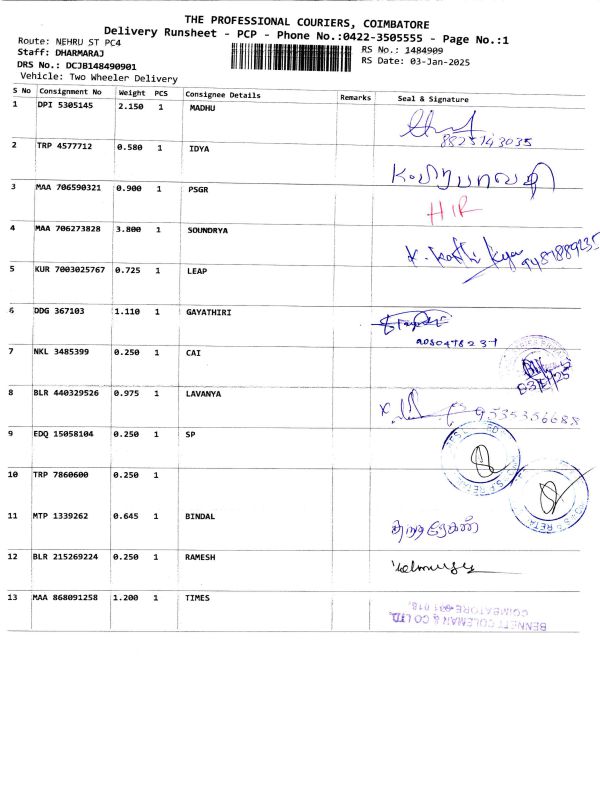 THE PROFESSIONAL COURIERS, COIMBATORE
Delivery Runsheet - PCP - Phone No.:0422-3505555 - Page No.:1
Route: NEHRU ST PC4
RS No.: 1484909
Staff: DHARMARAJ
RS Date: 03-Jan-2025
DRS No.: DCJB148490901
Vehicle: Two Wheeler Delivery
S No Consignment No Weight PCS Consignee Details Remarks Seal & Signature
1 DPI 5305145 2.150 1 MADHU
8825143035
2 TRP 4577712 0.580 1 IDYA
3 MAA 706590321 0.900 1 PSGR
HIR
4 MAA 706273828 3.800 1 SOUNDRYA
5 KUR 7003025767 0.725 1 LEAP
6 DDG 367103 1.110 1 GAYATHIRI
7 NKL 3485399 0.250 1 CAI
03/01/25
8 BLR 440329526 0.975 1 LAVANYA
9535356688
9 EDQ 15058104 0.250 1 SP
10 TRP 7860600 0.250 1
11 MTP 1339262 0.645 1 BINDAL
12 BLR 215269224 0.250 1 RAMESH
13 MAA 868091258 1.200 1 TIMES
BENNETT COLEMAN & CO LTD.
COIMBATORE-641 018.